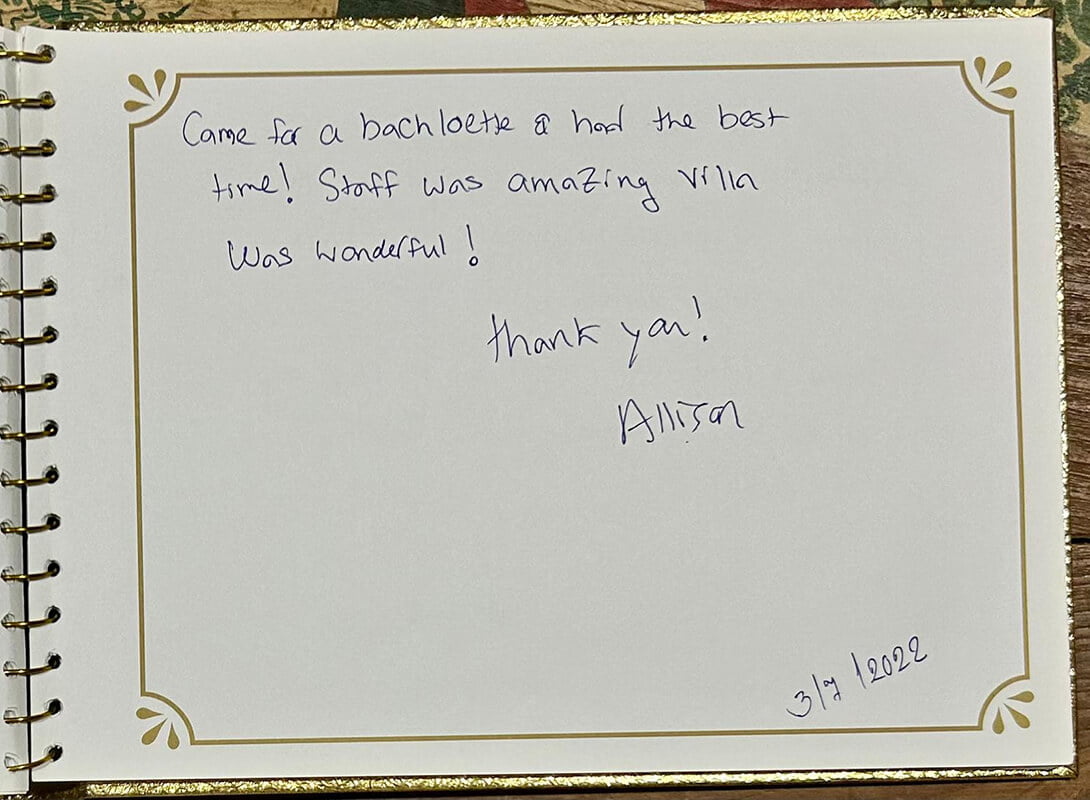 Came for a bachloette & had the best
time! Staff was amazing villa
was wonderful!
thank you!
Allison
3/7/2022